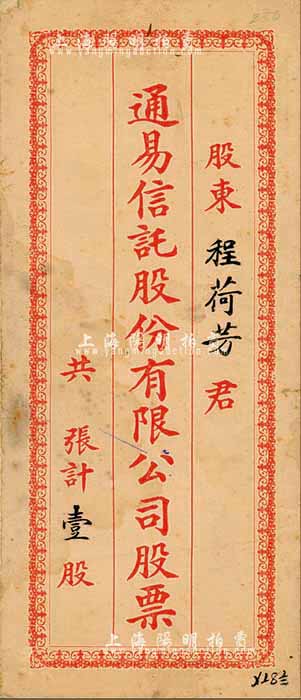 股東 程荷芳 君
通易信託股份有限公司股票
共 張計壹股
上海陽明拍賣
www.yangmingauction.com
上海陽明拍賣
上海陽明拍賣